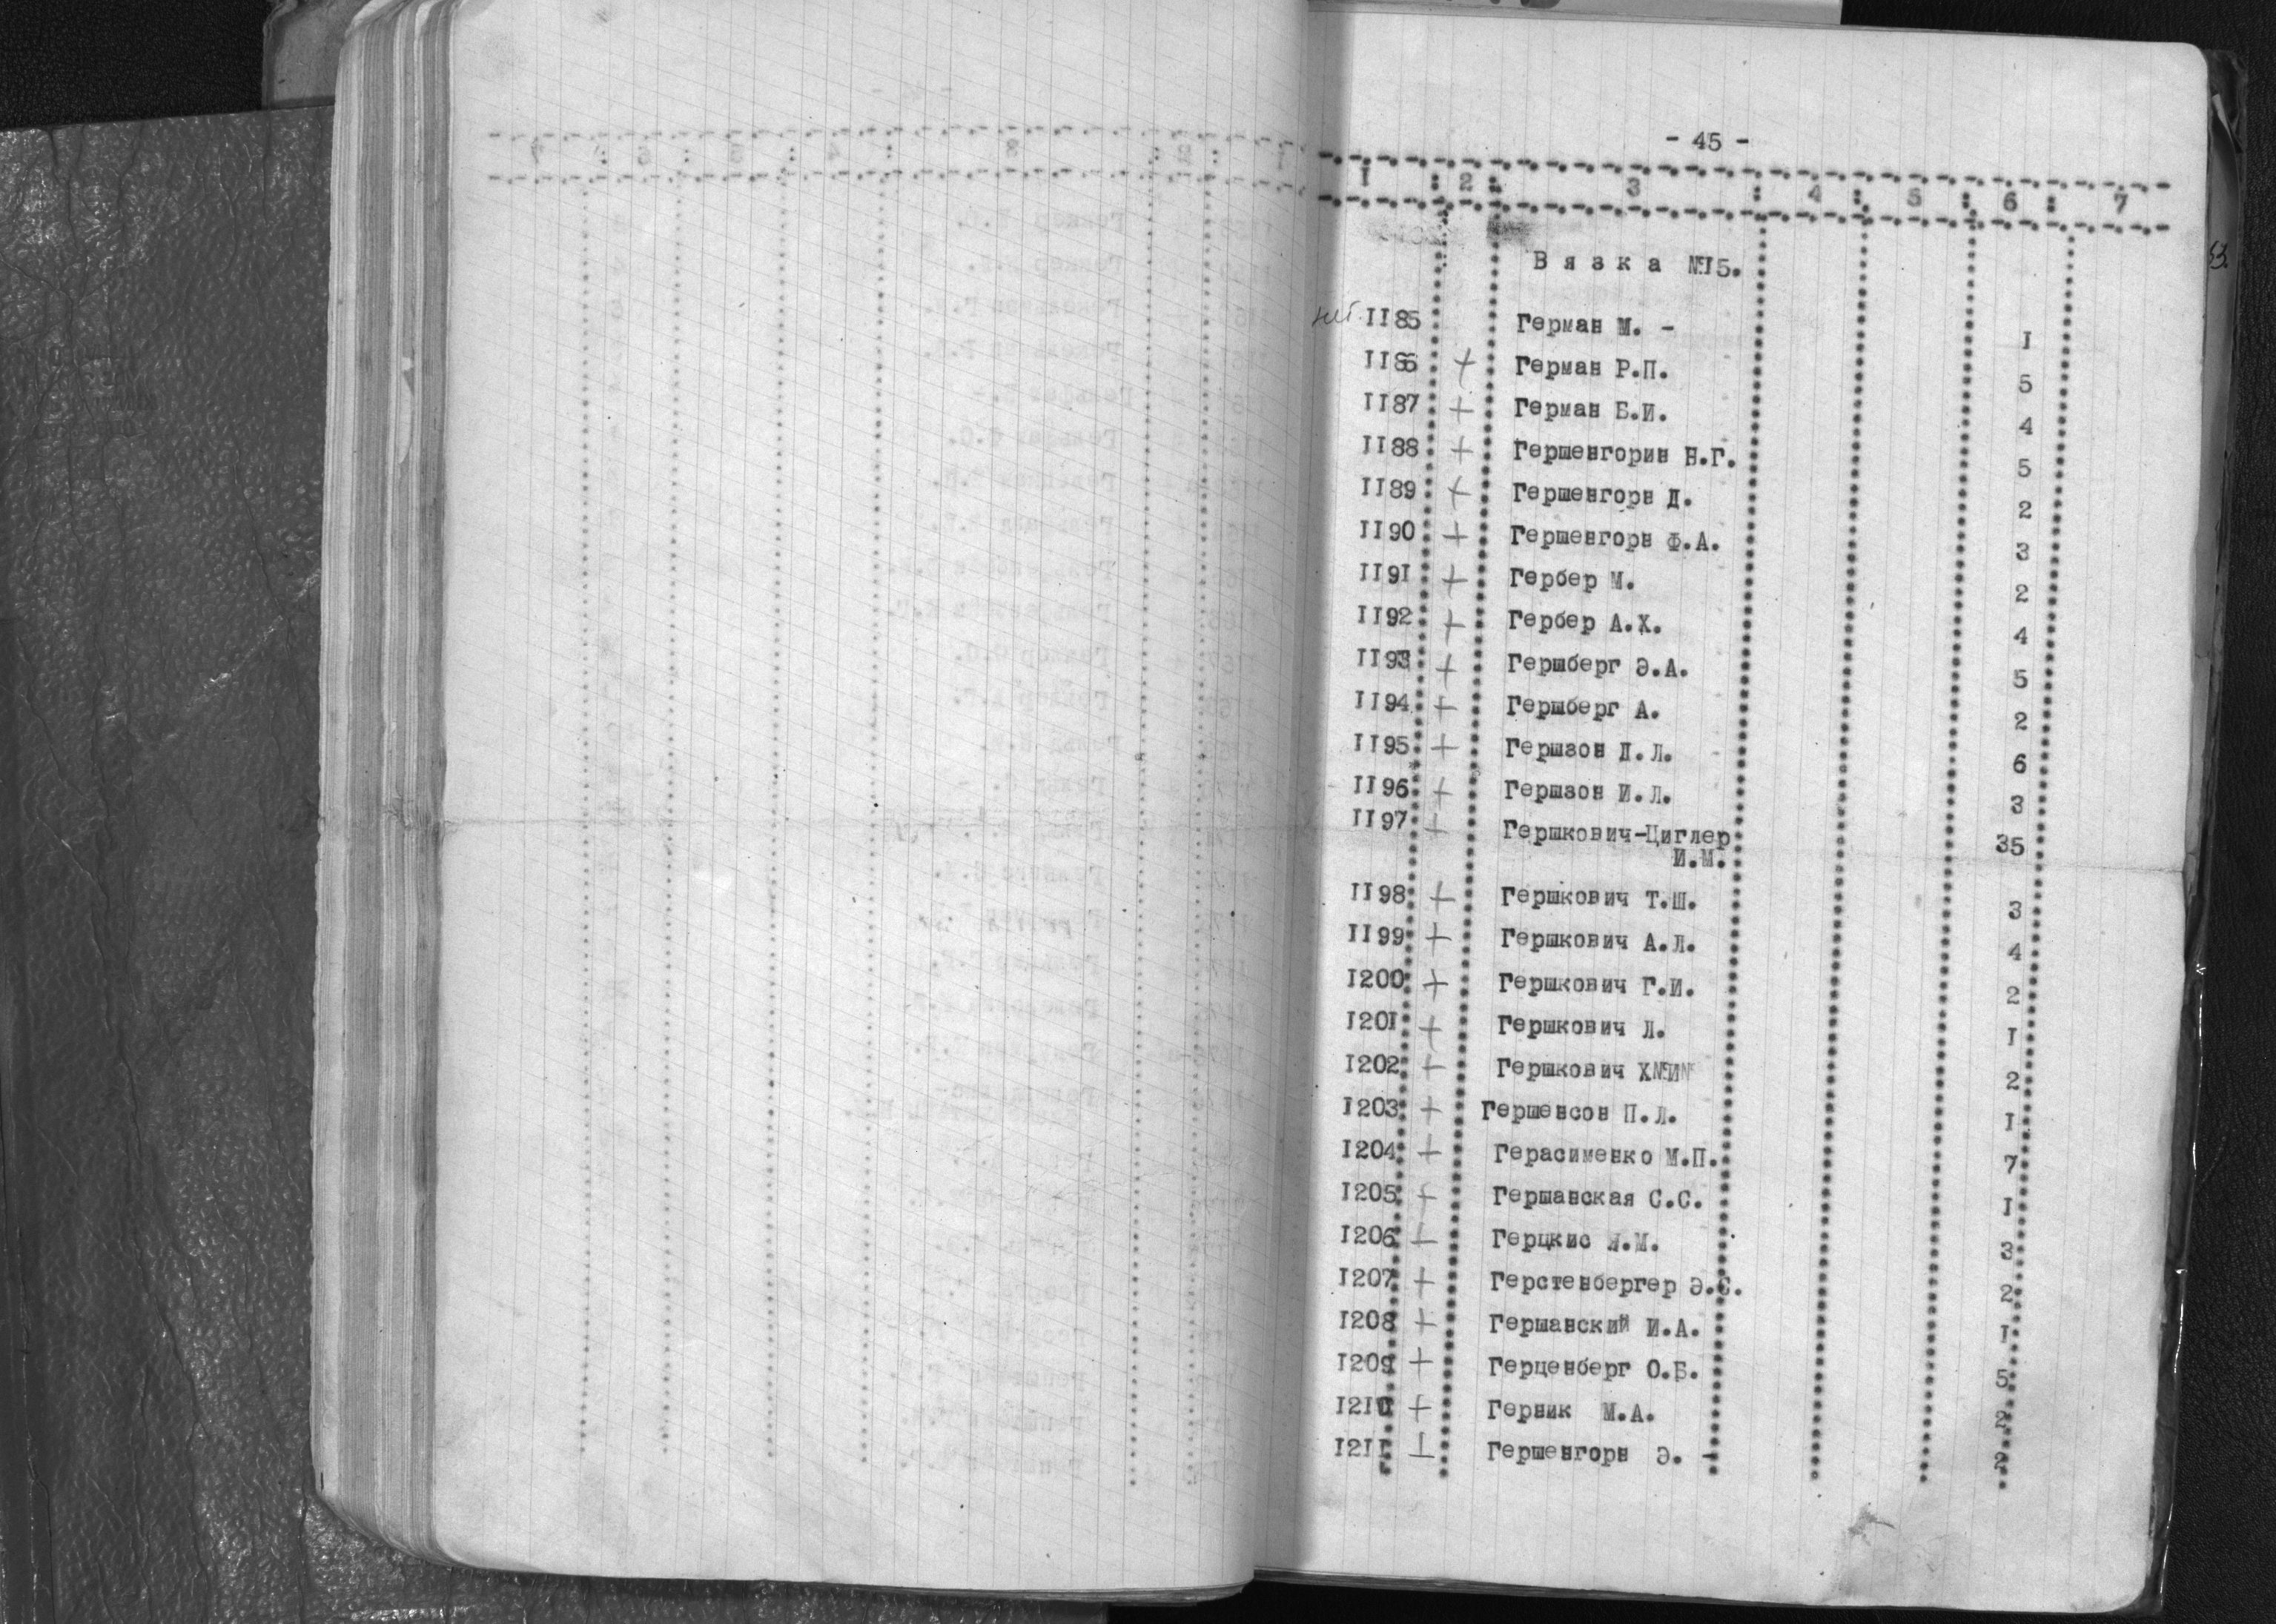 - 45 -
I : 2 : 3 : 4 : 5 : 6 : 7
Вязка №I5.
II85 Герман М. - I
II86 + Герман Р.П. 5
II87 + Герман Б.И. 4
II88 + Гершенгорин Н.Г. 5
II89 + Гершенгорн Д. 2
II90 + Гершенгорн Ф.А. 3
II9I + Гербер М. 2
II92 + Гербер А.Х. 4
II93 + Гершберг Э.А. 5
II94 + Гершберг А. 2
II95 + Гершзон Д.Л. 6
II96 + Гершзон И.Л. 3
II97 + Гершкович-Циглер 35
И.М.
II98 + Гершкович Т.Ш. 3
II99 + Гершкович А.Л. 4
I200 + Гершкович Г.И. 2
I20I + Гершкович Л. I
I202 + Гершкович Х№И№ 2
I203 + Гершенсон П.Л. I
I204 + Герасименко М.П. 7
I205 + Гершанская С.С. I
I206 + Герцкис Я.М. 3
I207 + Герстенбергер Э.С. 2
I208 + Гершанский И.А. I
I209 + Герценберг О.Б. 5
I2I0 + Герник М.А. 2
I2II + Гершенгорн Э. - 2